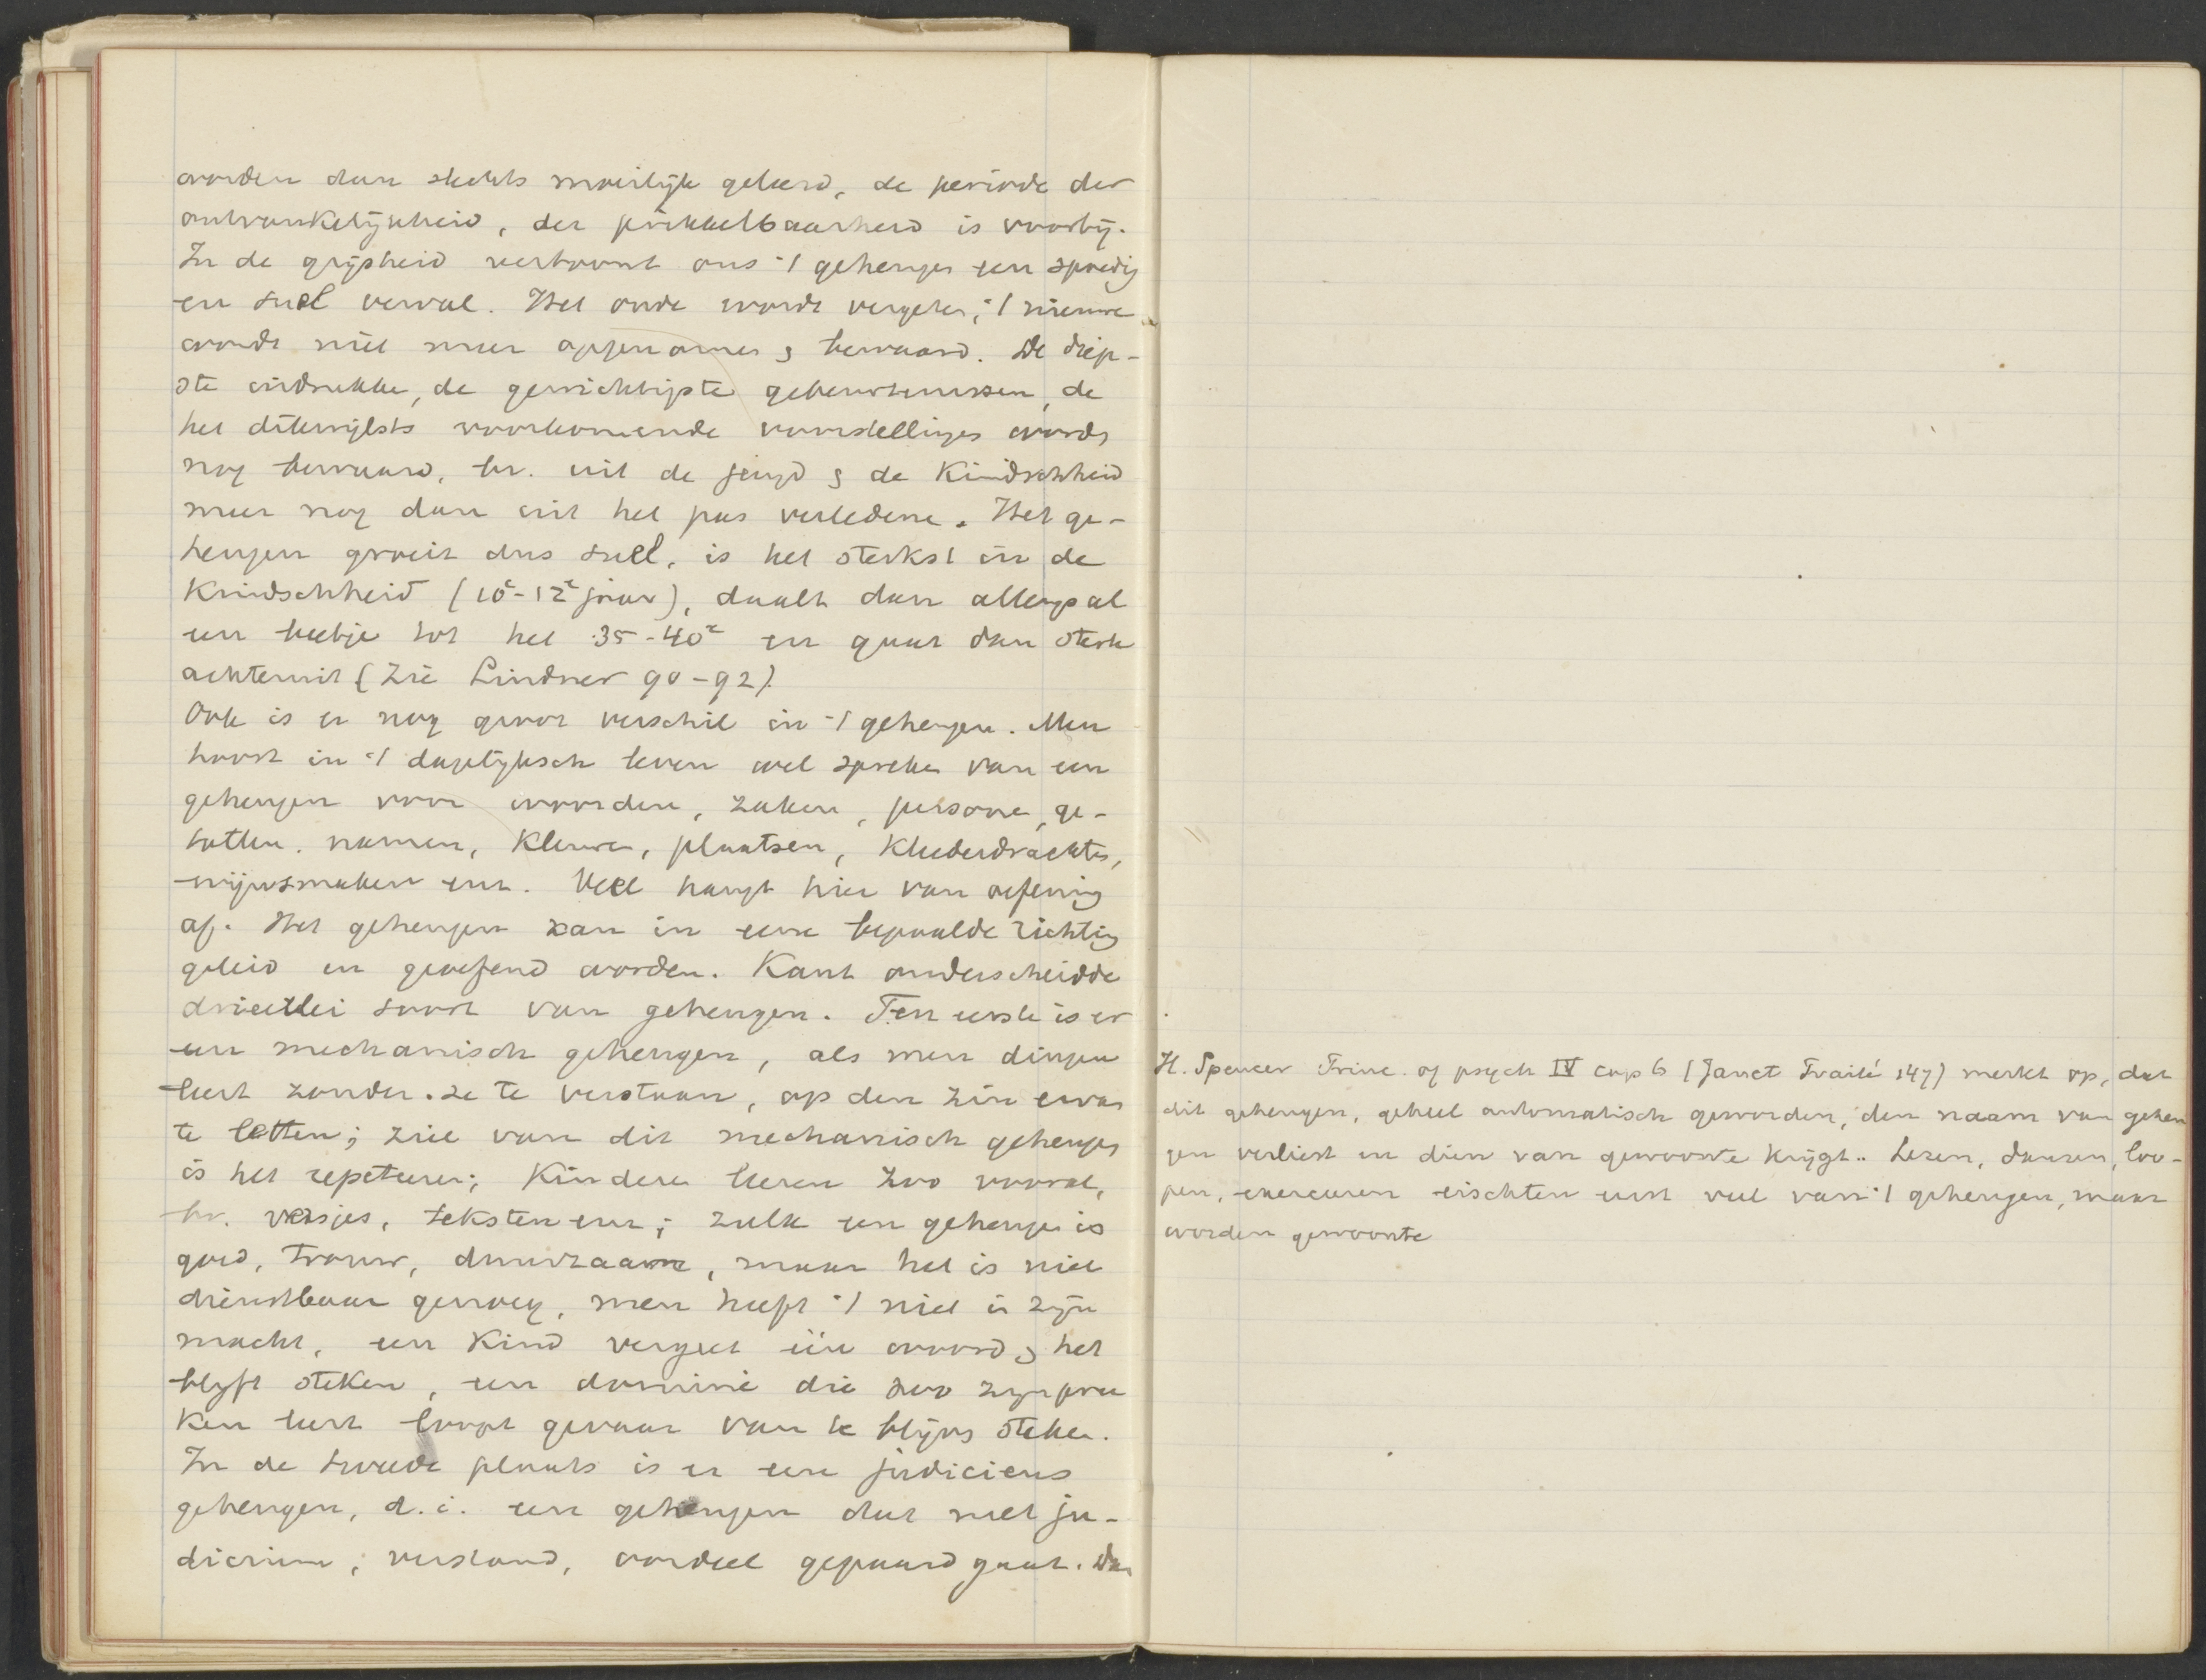 worden dan slechts moeilijk geleerd, de periode der
ontvankelijkheid, der prikkelbaarheid is voorbij.
In de grijsheid vertoont ons 't geheugen een spoedig
en snel verval. Het oude wordt vergeten, 't nieuwe
wordt niet meer opgenomen & bewaard. De diep-
ste indrukken, de gewichtigste gebeurtenissen, de
het dikwijlsts voorkomende voorstellingen worden
nog bewaard, bv. uit de jeugd & de Kindschheid
meer nog dan uit het pas verledene. Het ge-
heugen groeit dus snel, is het sterkst in de
Kindschheid (10e-12e jaar), daalt dan allengs al
een beetje tot het 35-40e en gaat dan sterk
achteruit (Zie Lindner 90-92).
Ook is er nog groot verschil in 't geheugen. Men
hoort in 't dagelijksch leven wel spreken van een
geheugen voor woorden, zaken, personen, ge-
tallen, namen, Kleuren, plaatsen, Kleederdrachten,
wijnsmaken enz. Veel hangt hier van oefening
af. Het geheugen kan in eene bepaalde richting
geleid en geoefend worden. Kant onderscheidde
drieërlei soort van geheugen. Ten eerste is er
een mechanisch geheugen, als men dingen
leert zonder ze te verstaan, op den zin ervan
te letten; ziel van dit mechanisch geheugen
is het repeteeren; Kinderen leeren zoo vooral,
bv. versjes, teksten enz; zulk een geheugen is
goed, trouw, duurzaam, maar het is niet
dienstbaar genoeg, men heeft 't niet in zijn
macht, een Kind vergeet één woord & het
blijft steken, een dominé die zoo zijn pree
Ken leert loopt gevaar van te blijven steken.
In de tweede plaats is er een judicieus
geheugen, d.i. een geheugen dat met ju-
dicium, verstand, oordeel gepaard gaat. Dan
H. Spencer Princ. of psych IV cap 6 (Janet Traité 147) merkt op, dat
dit geheugen, geheel automatisch geworden, den naam van geheu
gen verliest en dien van gewoonte krijgt. Lezen, dansen, loo-
pen, exerceeren eischten eerst veel van 't geheugen, maar
worden gewoonte